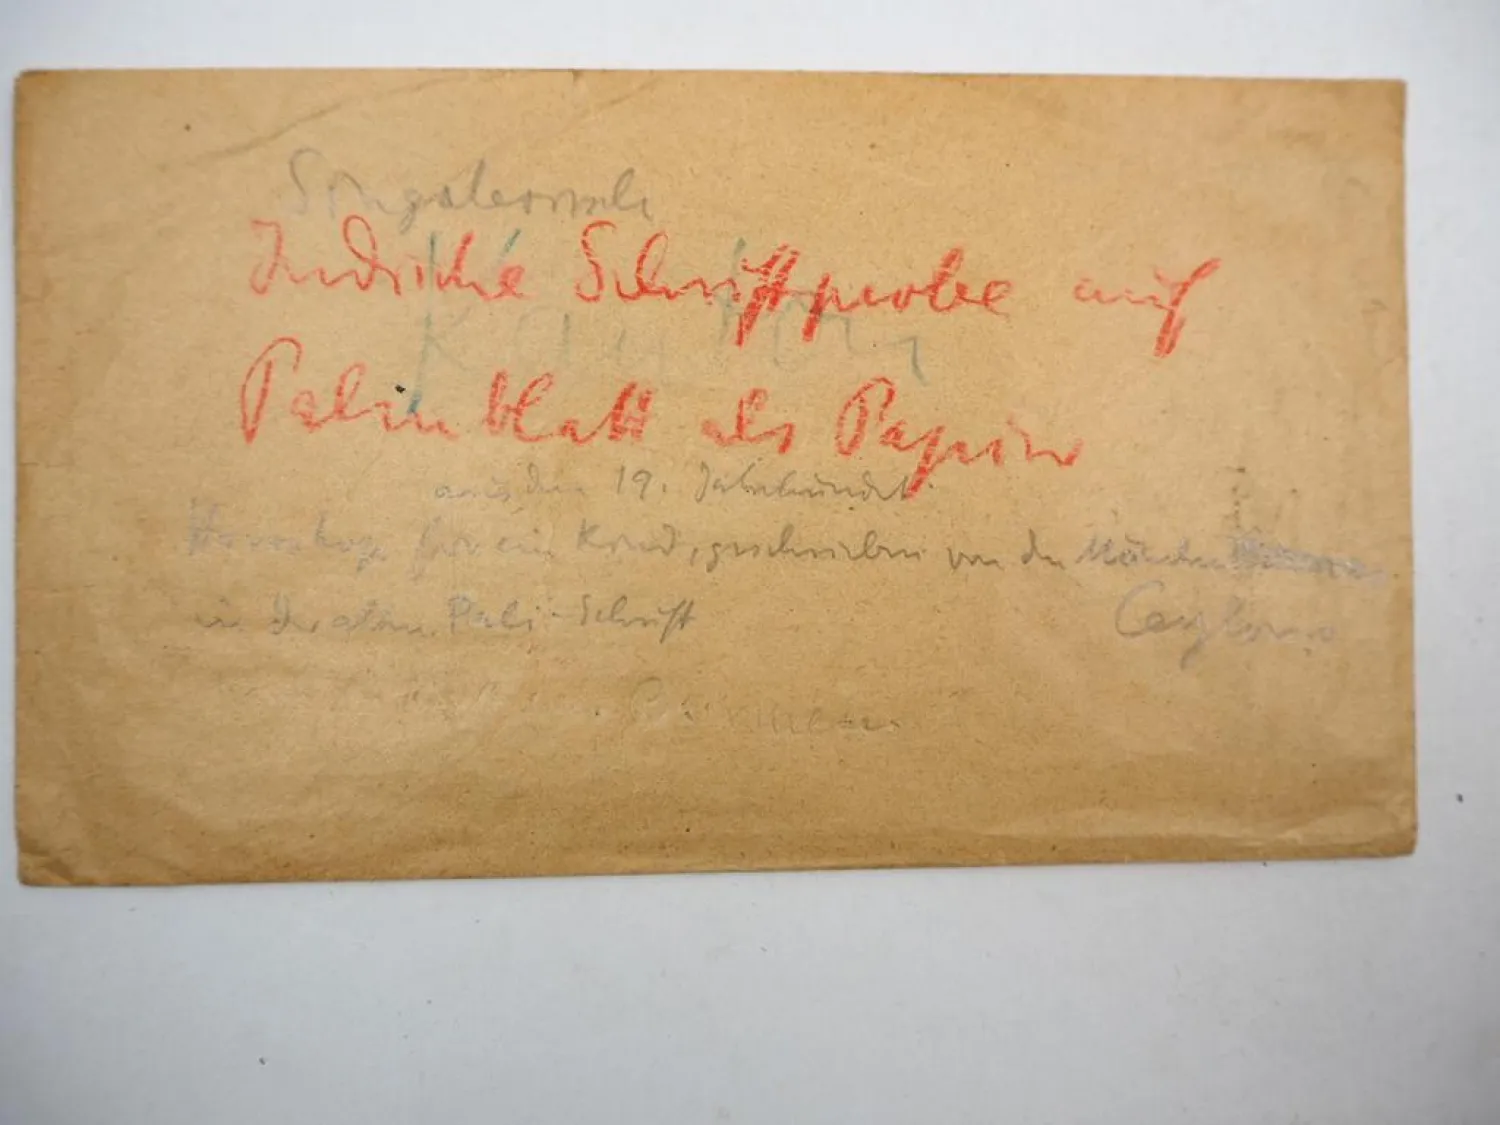 Singalesische
Indische Schriftprobe auf
Palmblatt als Papier
aus dem 19. Jahrhundert
Horoskop für ein Kind, geschrieben von den Mönchen
in der alten Pali-Schrift Ceylons